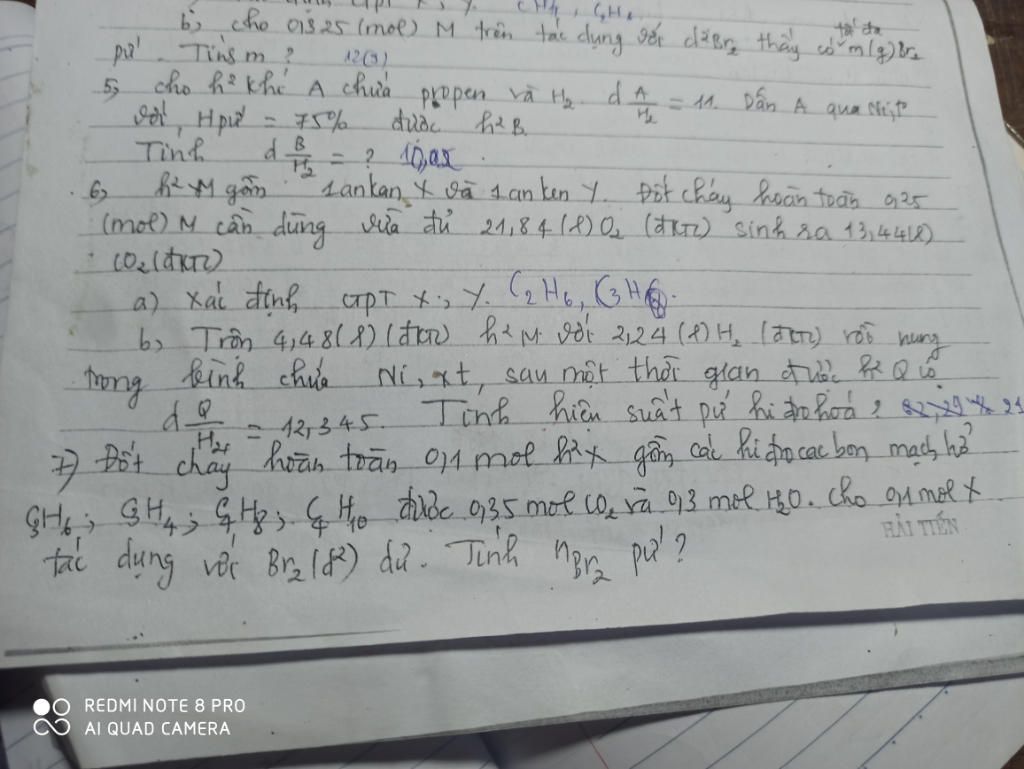 b, cho 0,325 (mol) M trên tác dụng với d² Br₂ thấy có tối đa m(g) Br₂
pứ. Tính m? 12(g)
5, cho h² khí A chứa propen và H₂. d A/H₂ = 11. Dẫn A qua Ni, t°
với, H pứ = 75% được h² B.
Tính d B/H₂ = ?
6, h² M gồm 1 ankan X và 1 anken Y. Đốt cháy hoàn toàn 0,25
(mol) M cần dùng vừa đủ 21,84 (l) O₂ (đktc) sinh ra 13,44(l)
CO₂ (đktc)
a) Xác định CTPT X, Y. C₂H₆, C₃H₆.
b, Trộn 4,48(l) (đktc) h² M với 2,24 (l) H₂ (đktc) rồi nung
trong bình chứa Ni, xt, sau một thời gian được h² Q có
d Q/H₂ = 12,345. Tính hiệu suất pứ hiđro hoá?
7) Đốt cháy hoàn toàn 0,1 mol h² X gồm các hiđrocacbon mạch hở
C₃H₆; C₃H₄; C₄H₈; C₄H₁₀ được 0,35 mol CO₂ và 0,3 mol H₂O. Cho 0,1 mol X
HẢI TIẾN
tác dụng với Br₂ (d²) dư. Tính nBr₂ pứ?
REDMI NOTE 8 PRO
AI QUAD CAMERA